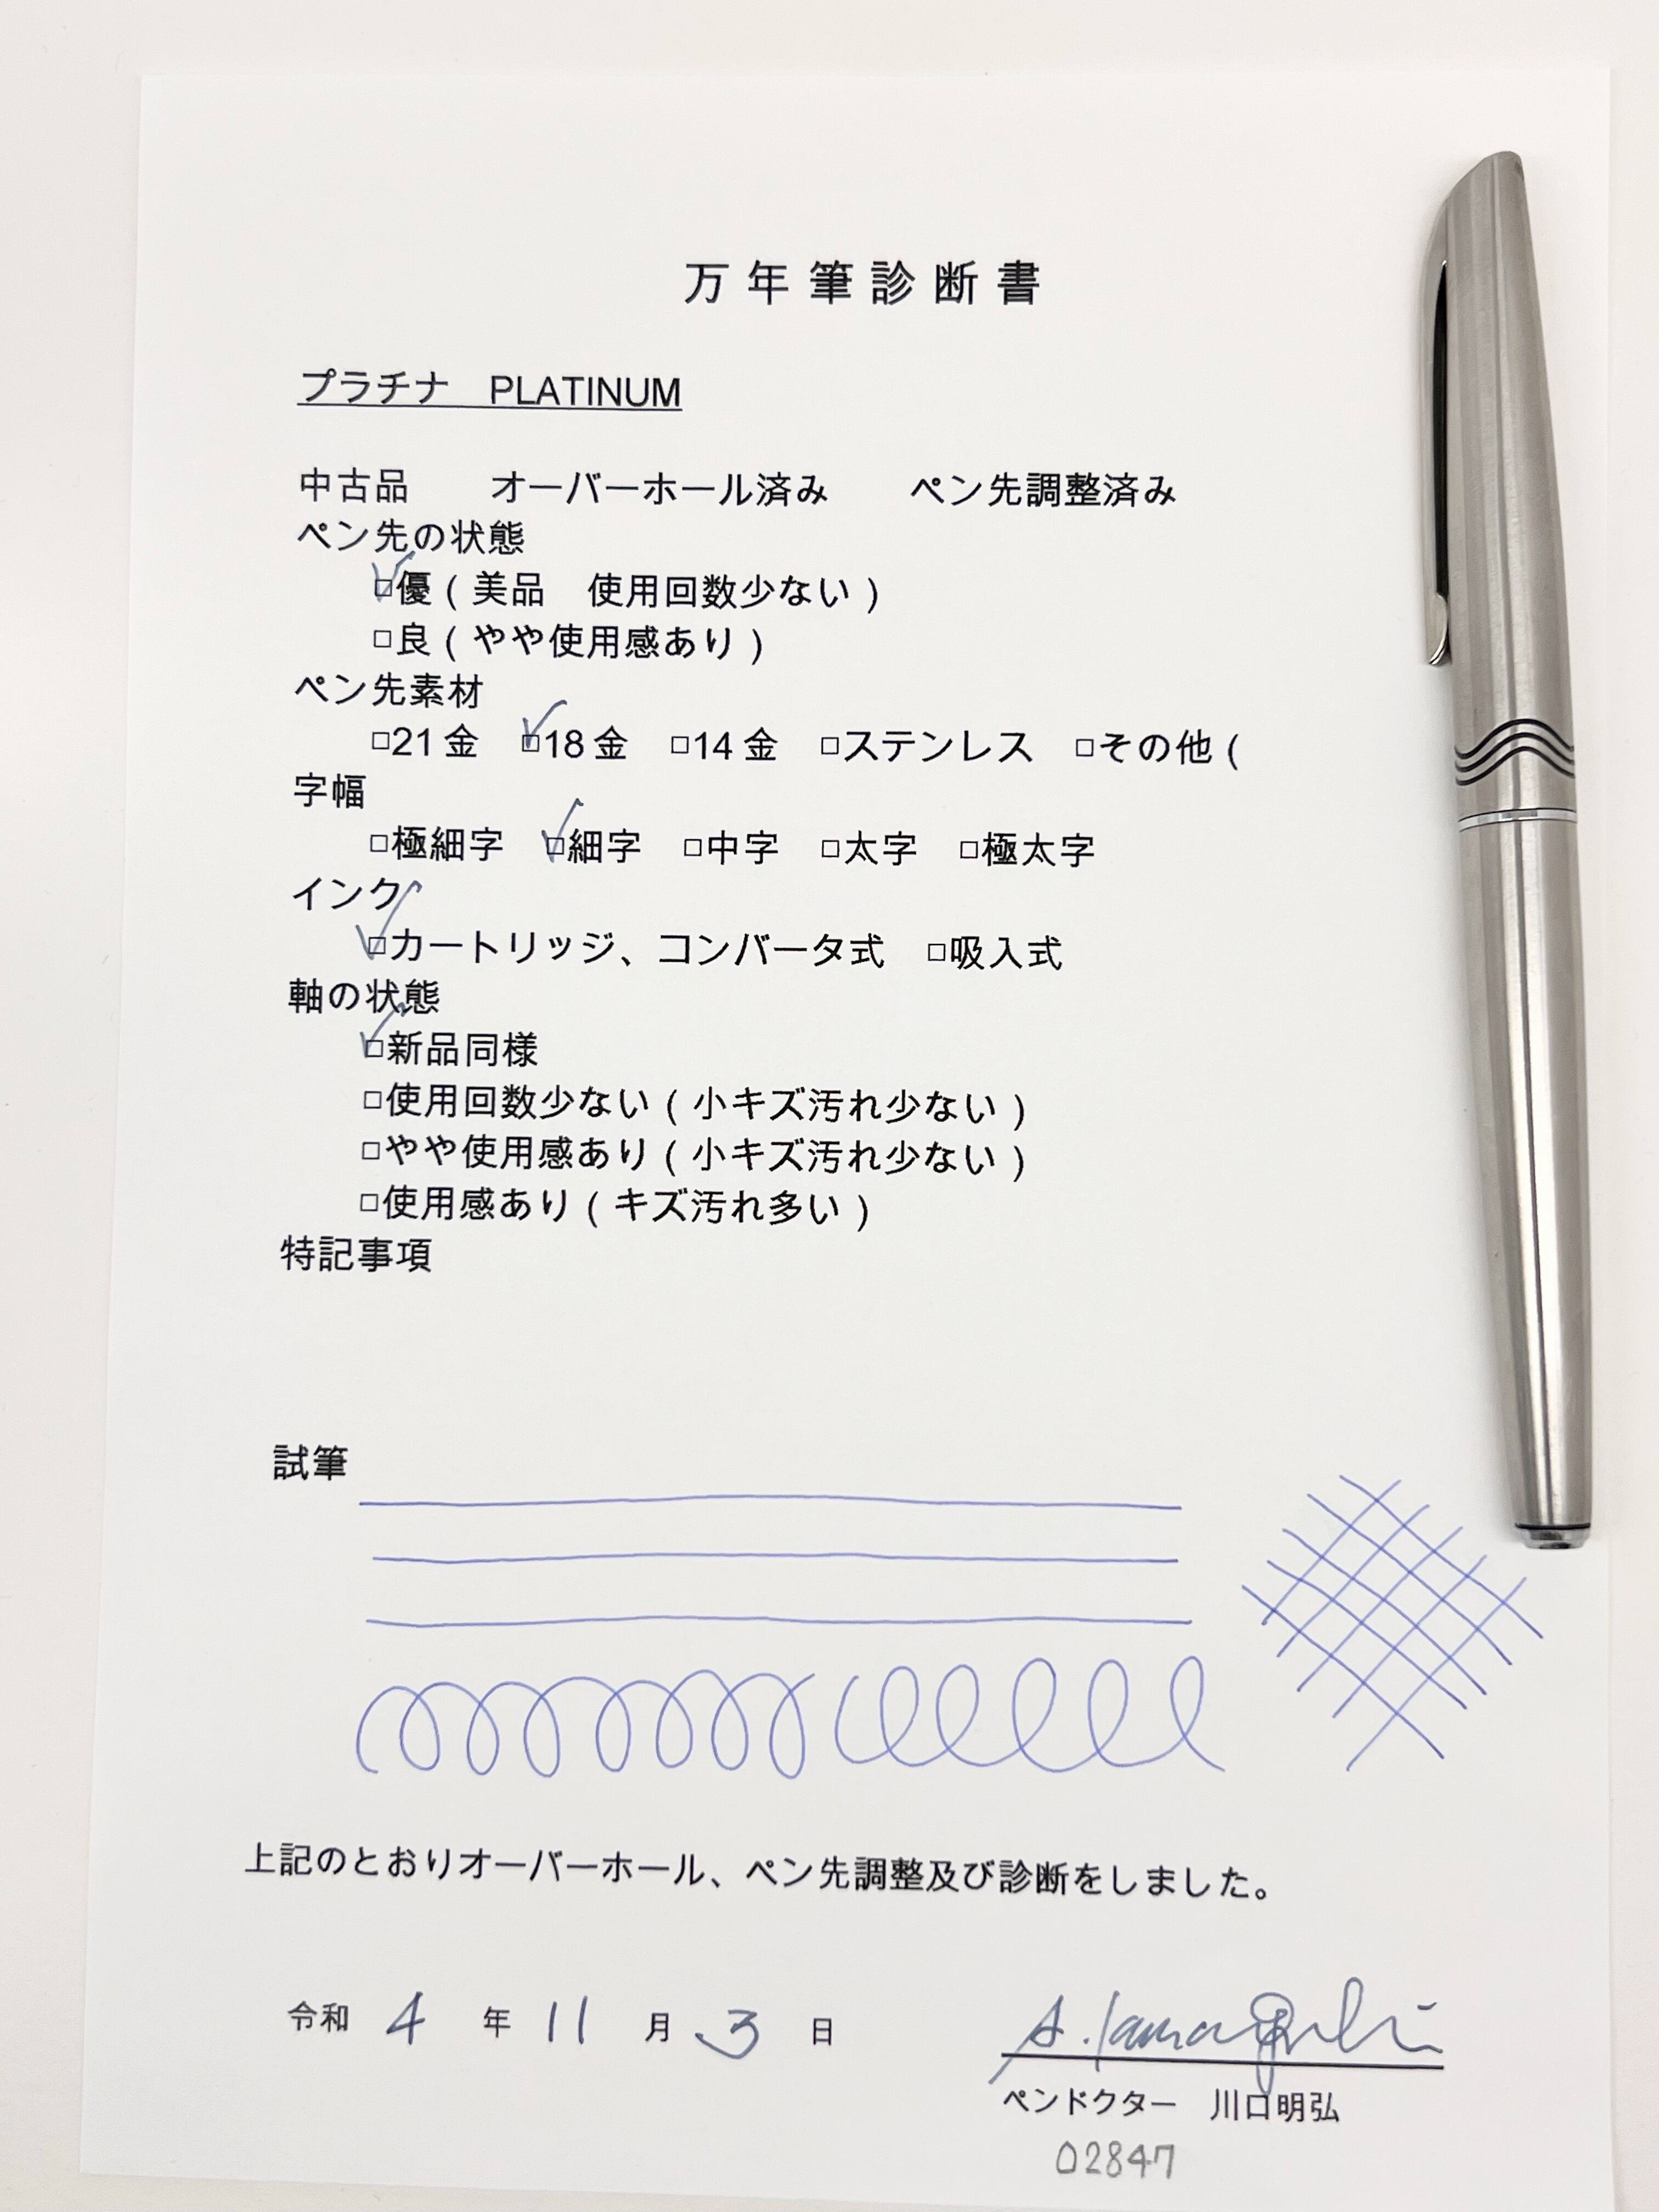 万年筆診断書
プラチナ　PLATINUM
中古品　　オーバーホール済み　　ペン先調整済み
ペン先の状態
☑優（美品　使用回数少ない）
□良（やや使用感あり）
ペン先素材
□21金　☑18金　□14金　□ステンレス　□その他（
字幅
□極細字　☑細字　□中字　□太字　□極太字
インク
☑カートリッジ、コンバータ式　□吸入式
軸の状態
☑新品同様
□使用回数少ない（小キズ汚れ少ない）
□やや使用感あり（小キズ汚れ少ない）
□使用感あり（キズ汚れ多い）
特記事項
試筆
上記のとおりオーバーホール、ペン先調整及び診断をしました。
令和　4　年　11　月　3　日
ペンドクター　川口明弘
02847